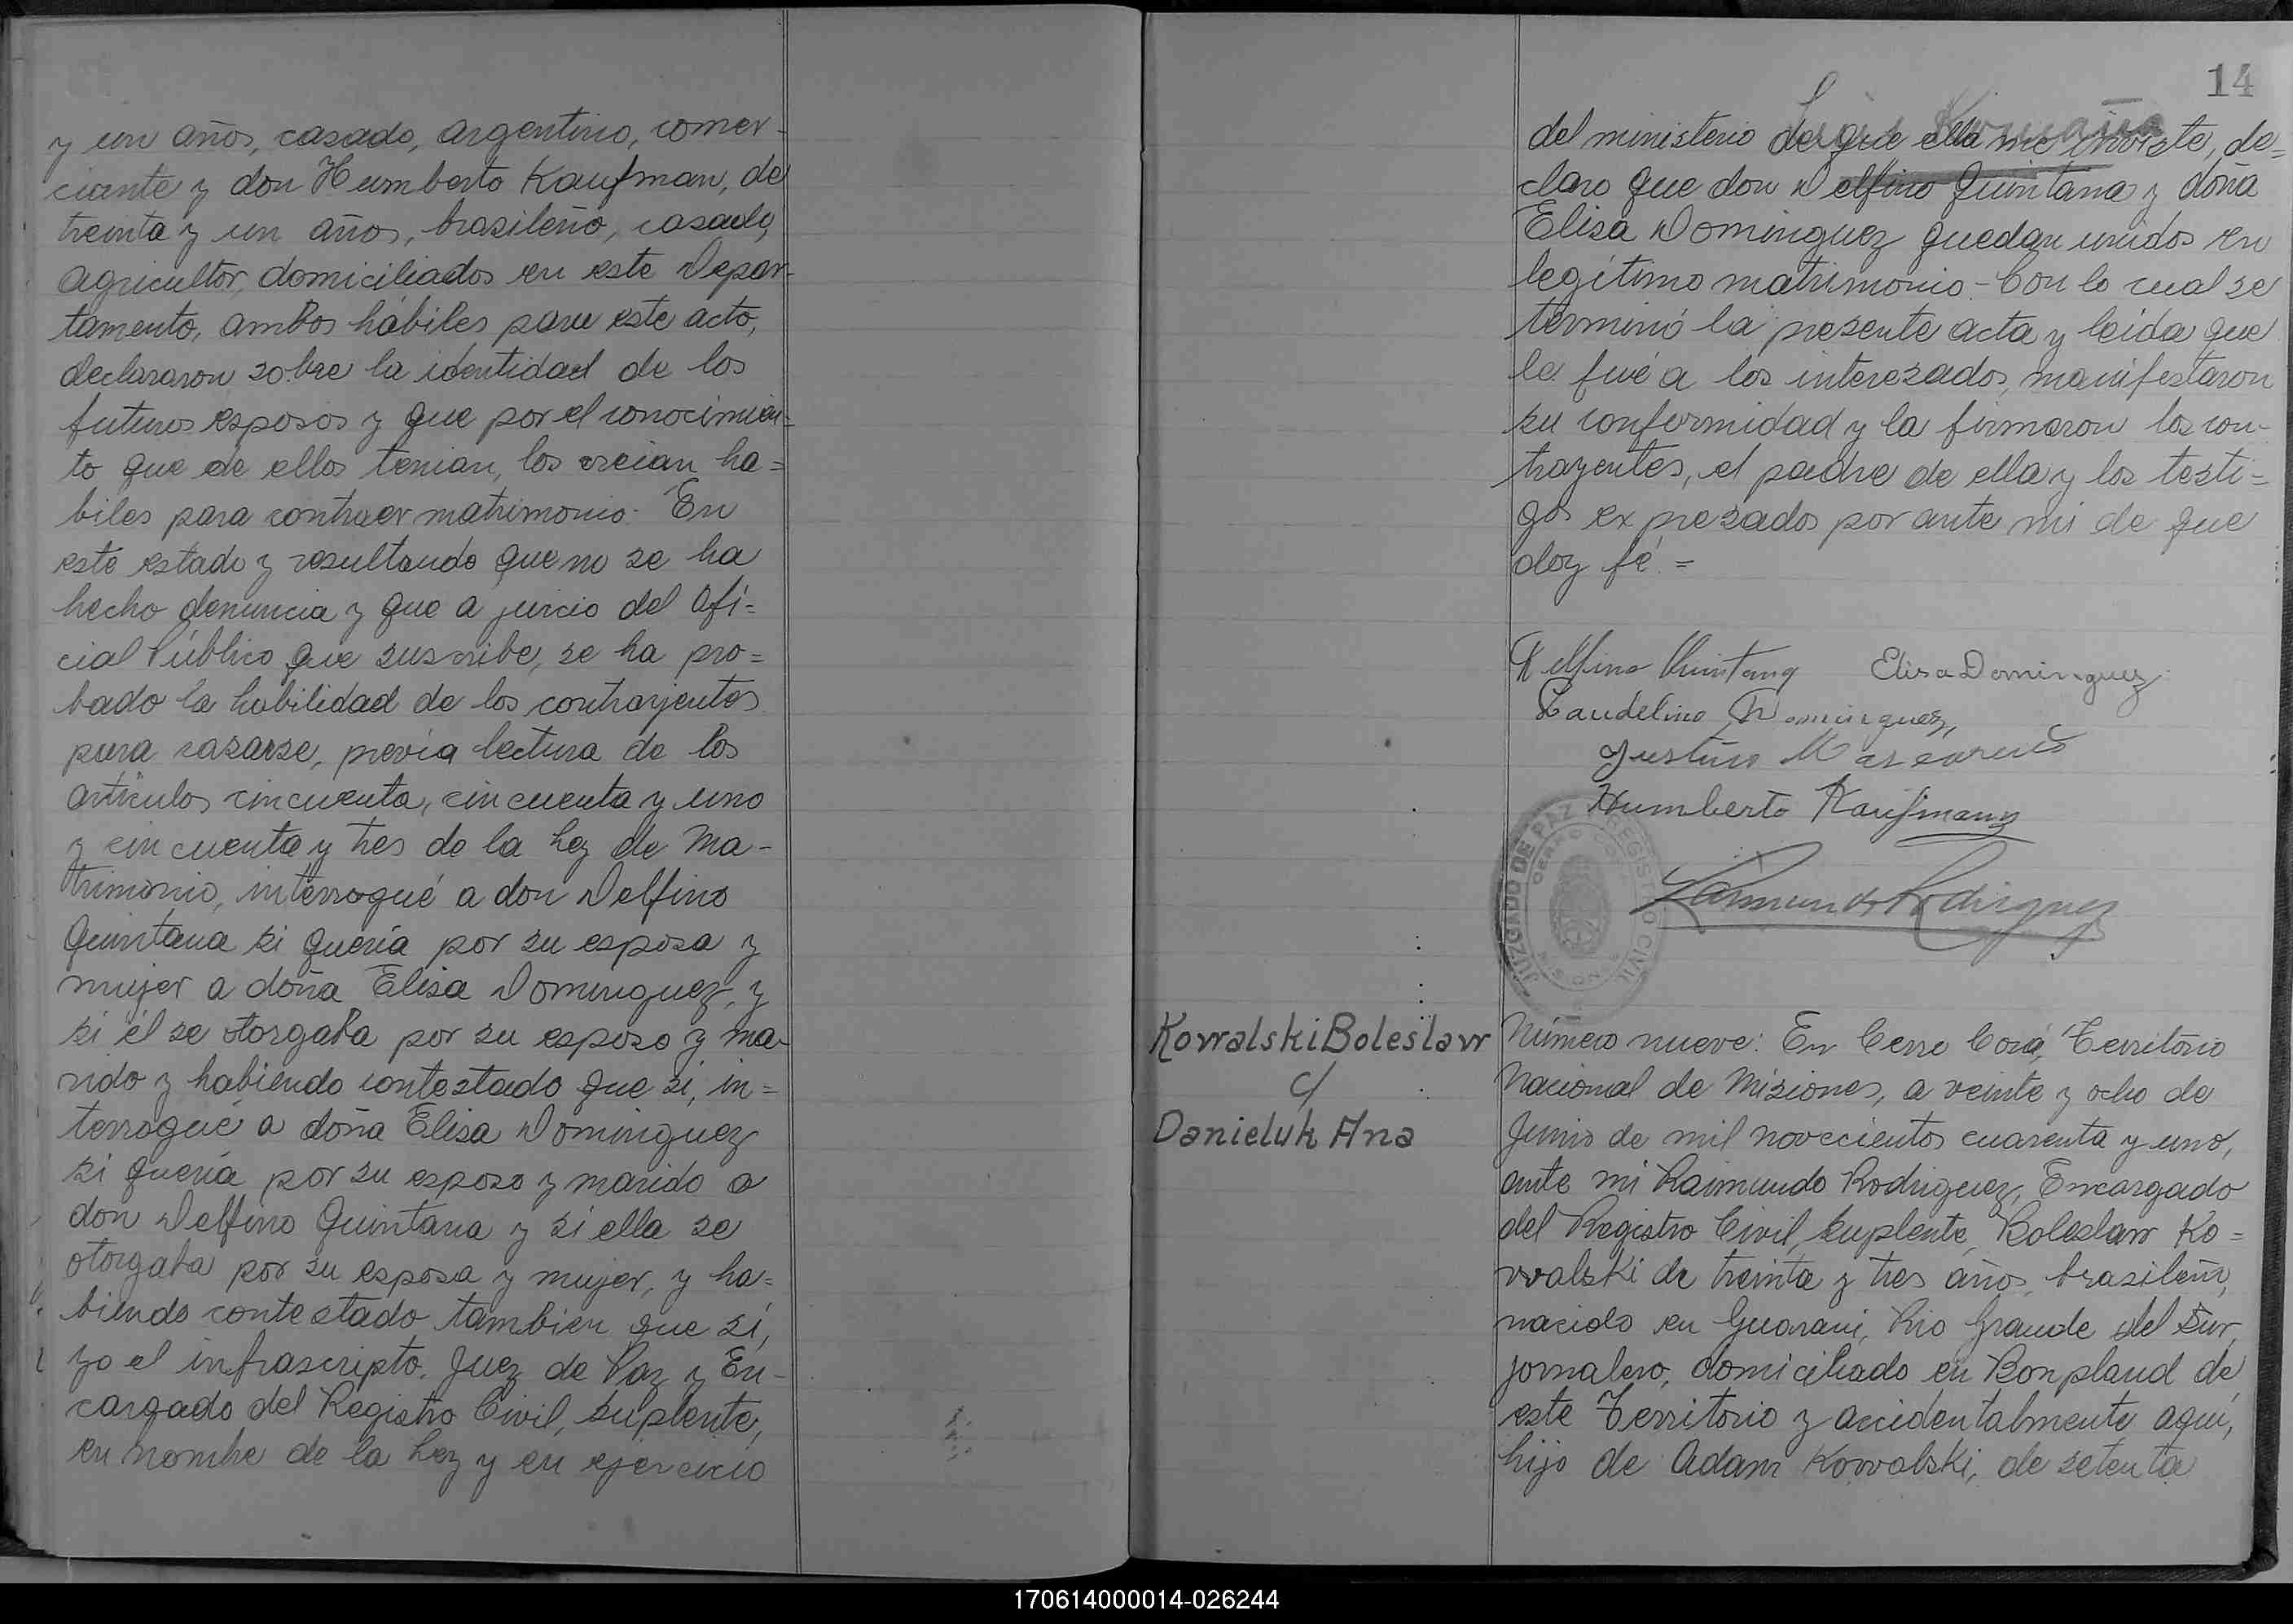 y un años, casado, argentino, comer-
ciante y don Humberto Kaufman, de
treinta y un años, brasileño, casado,
agricultor, domiciliados en este Depar-
tamento, ambos hábiles para este acto,
declararon sobre la identidad de los
futuros esposos y que por el conocimien-
to que de ellos tenian, los creian ha=
biles para contraer matrimonio.- En
este estado y resultando que no se ha
hecho denuncia y que a juicio del Ofi=
cial Público que suscribe, se ha pro=
bado la habilidad de los contrayentes
para casarse, previa lectura de los
artículos cincuenta, cincuenta y uno
y cincuenta y tres de la Ley de Ma-
trimonio, interrogué a don Delfino
Quintana si quería por su esposa y
mujer a doña Elisa Dominguez, y
si él se otorgaba por su esposo y ma-
rido y habiendo contestado que si, in=
terrogué a doña Elisa Dominguez
si quería por su esposo y marido a
don Delfino Quintana y si ella se
otorgaba por su esposa y mujer, y ha=
biendo contestado tambien que sí,
yo el infrascripto, Juez de Paz y En-
cargado del Registro Civil, suplente,
en nombre de la Ley y en ejercicio
14
del ministerio de que ella me inviste, de=
claro que don Delfino Quintana y doña
Elisa Dominguez quedan unidos en
legítimo matrimonio.- Con lo cual se
terminó la presente acta y leida que
le fué a los interesados, manifestaron
su conformidad y la firmaron los con-
trayentes, el padre de ella y los testi=
gos expresados por ante mi de que
doy fé.=
Delfino Quintana Elisa Dominguez
Laudelino Dominguez
Justino
Humberto Kaufmann
Raimundo Rodriguez
JUZGADO DE PAZ REGISTRO CIVIL
MISIONES
Kowalski Boleslaw
c/
Danieluk Ana
Número nueve: En Cerro Corá, Territorio
Nacional de Misiones, a veinte y ocho de
Junio de mil novecientos cuarenta y uno,
ante mi Raimundo Rodriguez, Encargado
del Registro Civil, suplente, Boleslaw Ko=
walski de treinta y tres años, brasileño,
nacido en Guarani, Rio Grande del Sur,
jornalero, domiciliado en Bonpland de
este Territorio y accidentalmente aquí,
hijo de Adam Kowalski, de setenta
170614000014-026244